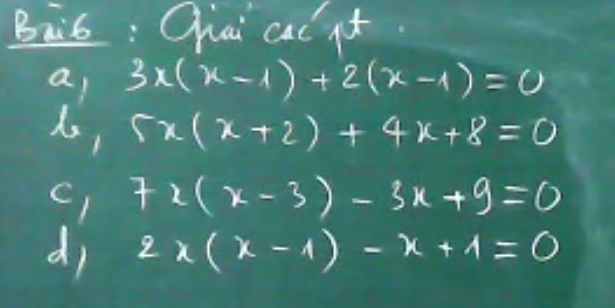 Bài 6 : Giải các pt .
a, 3x(x-1)+2(x-1)=0
b, 5x(x+2) + 4x+8=0
c, 7x(x-3) - 3x+9=0
d, 2x(x-1) - x+1=0